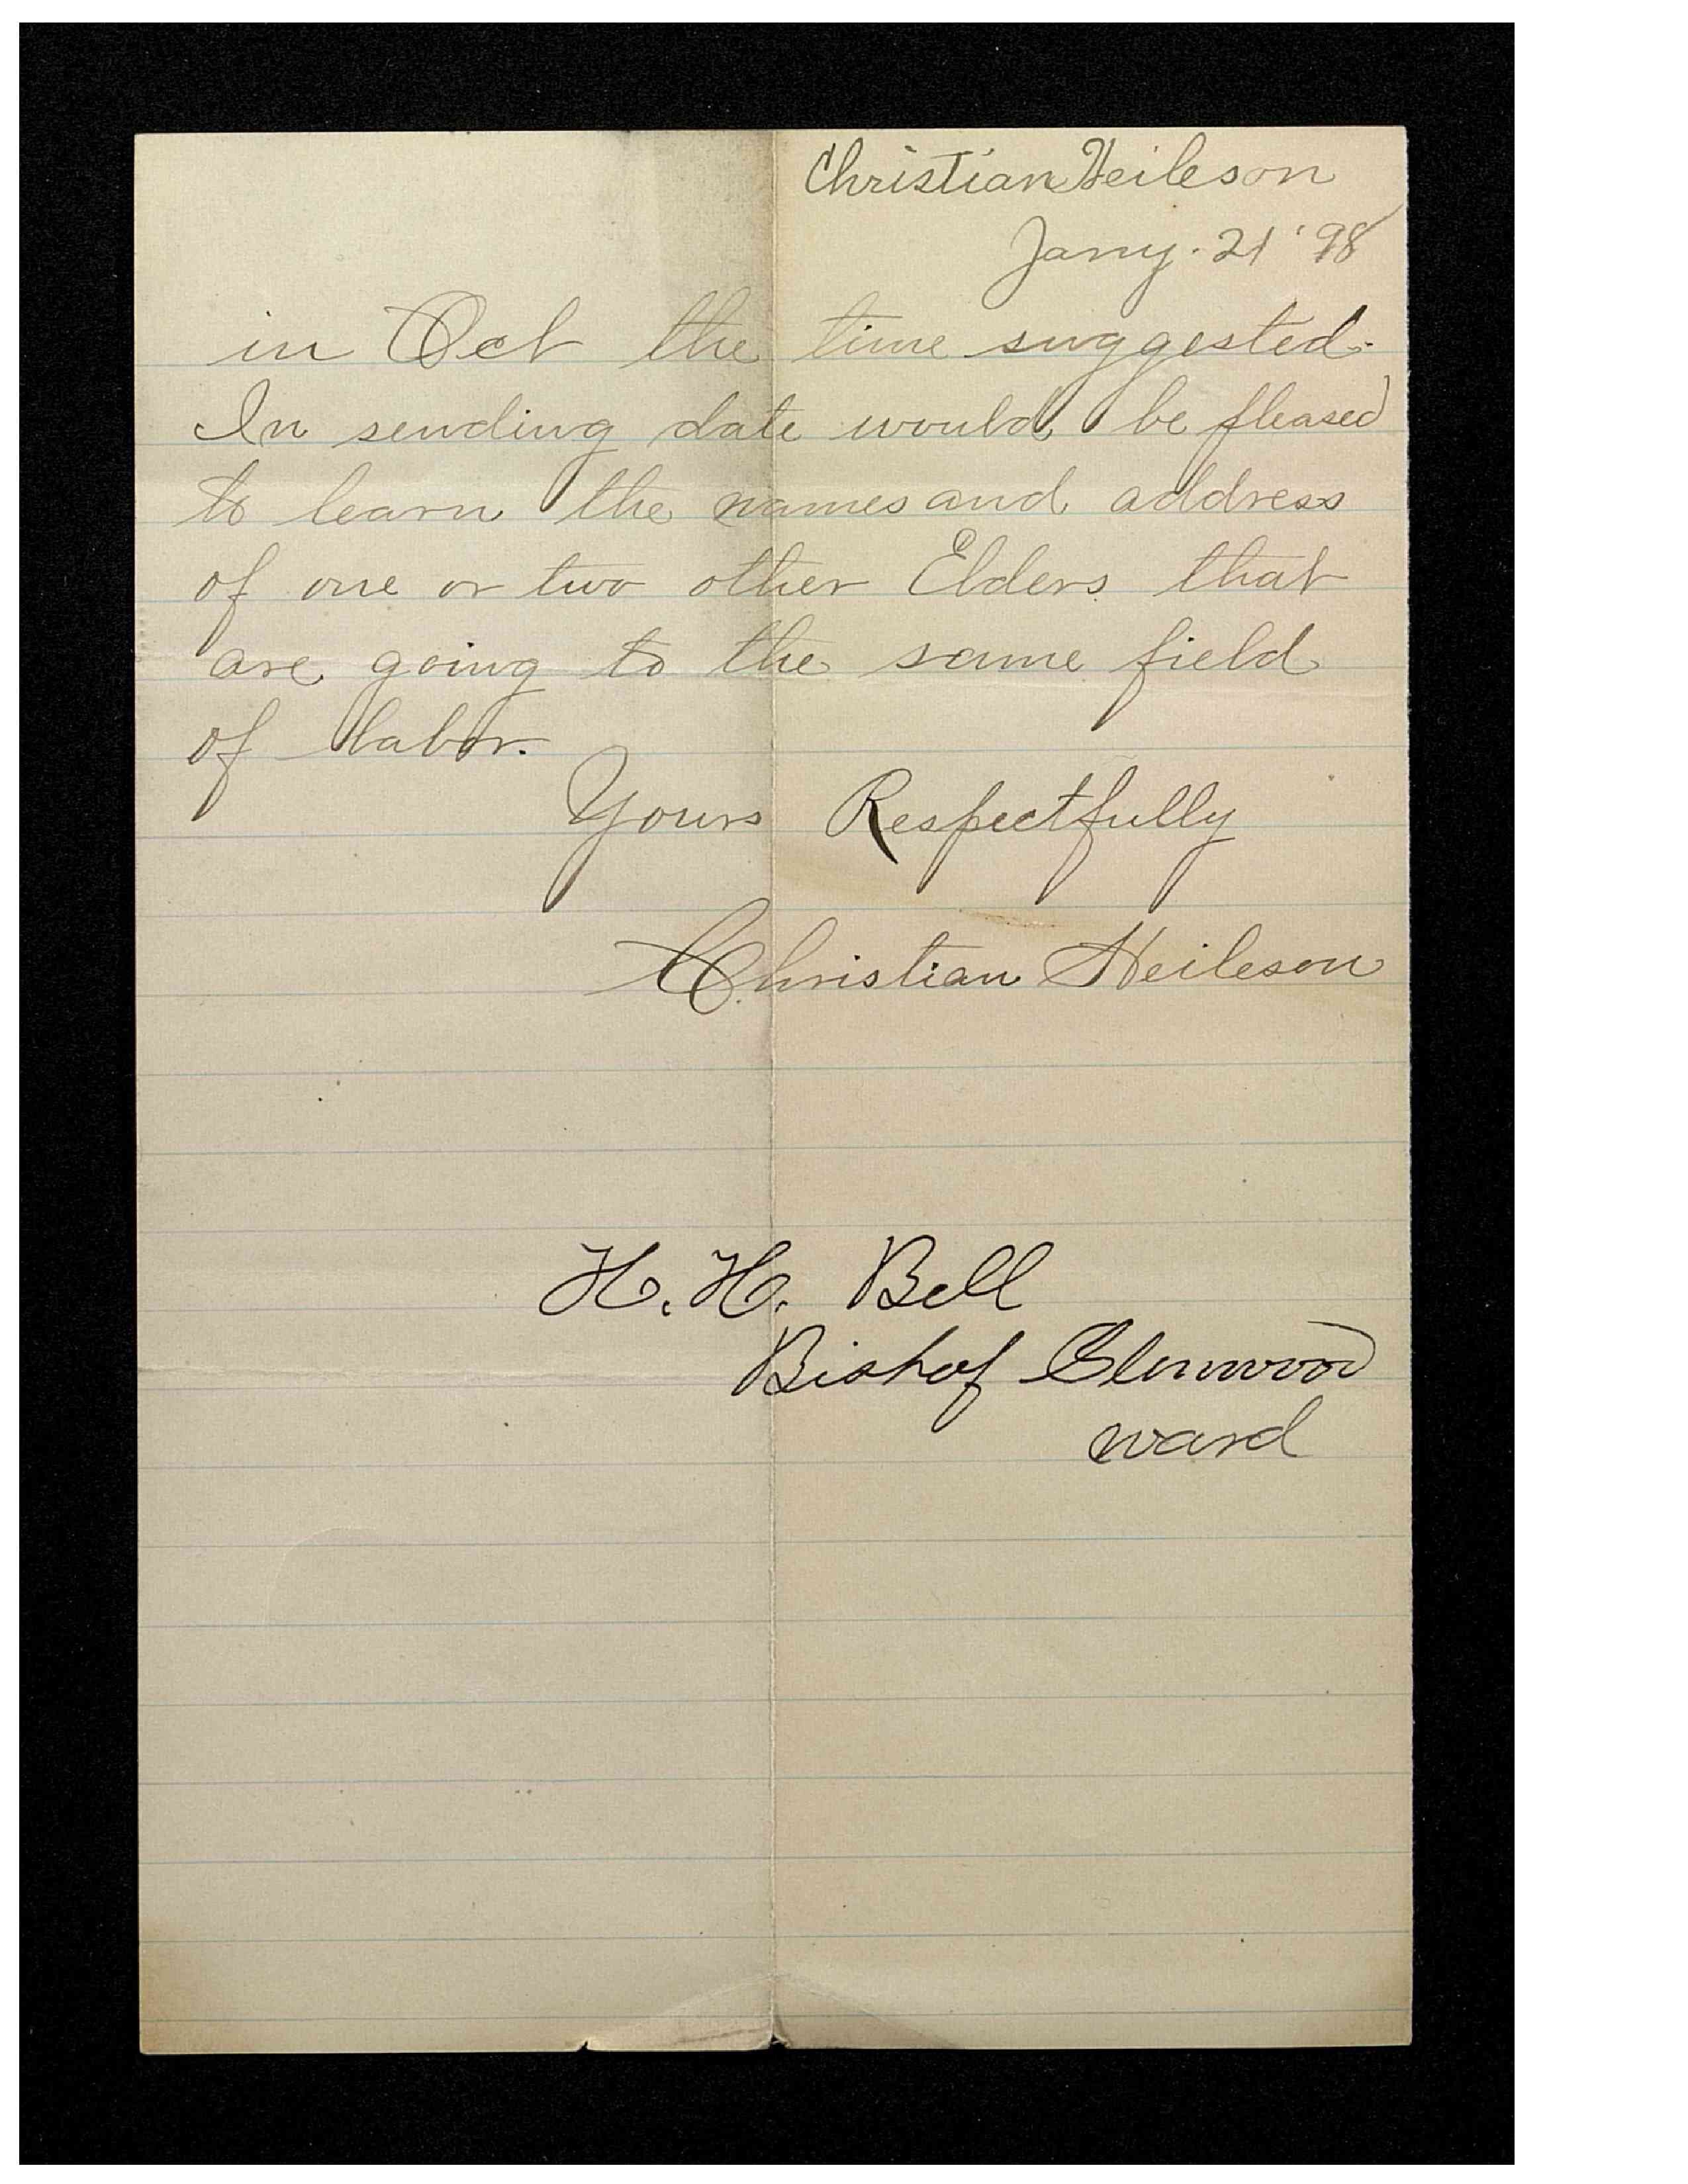 Christian Heileson
Jany. 21 '98
in Oct the time suggested.
In sending date would be pleased
to learn the names and address
of one or two other Elders that
are going to the same field
of labor.
Yours Respectfully
Christian Heileson
H. H. Bell
Bishop Glenwood
ward